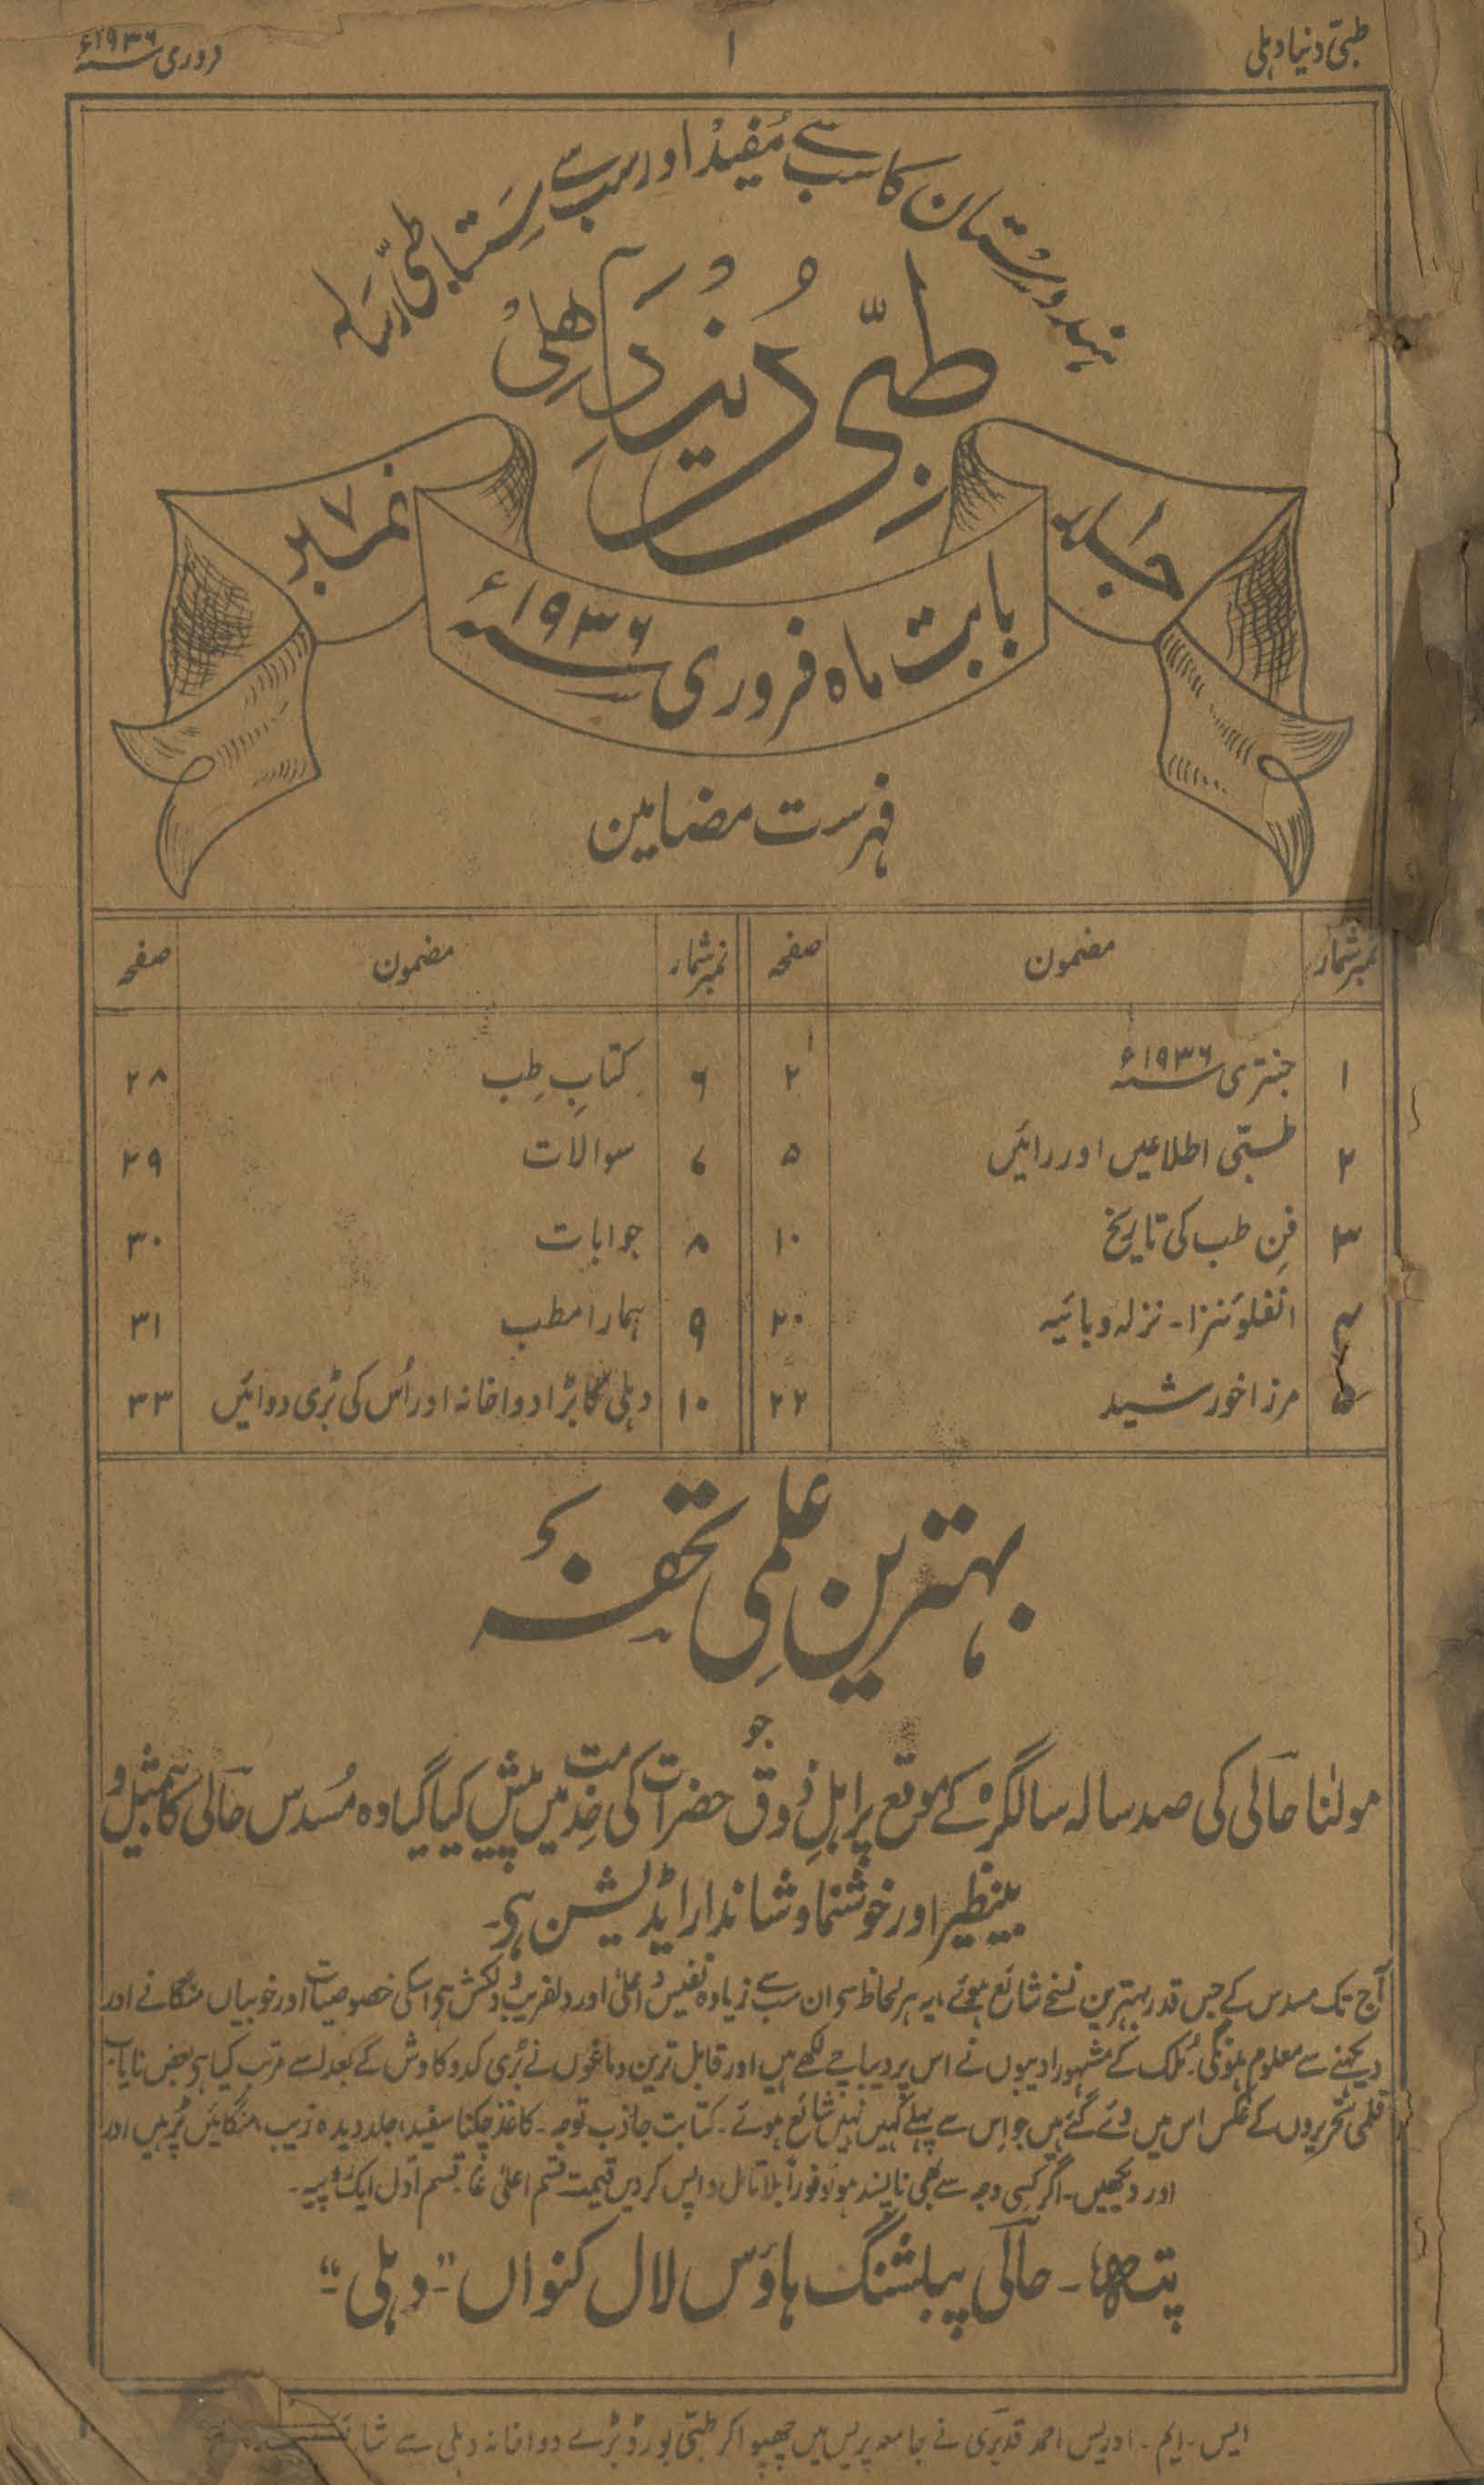 طبّی دنیا دہلی
۱
فروری سنہ ۱۹۳۶ء
ہندوستان کا سب سے مُفید اور سب سے سَستا طبّی رسَالہ
طبّی دُنیا دہلی
جلد
نمبر ۷
بابت ماہ فروری سنہ ۱۹۳۶ء
فہرست مضامین
نمبر شمار مضمون صفحہ نمبر شمار مضمون صفحہ
۱ جنتری سنہ ۱۹۳۶ء ۲ ۶ کتابِ طِب ۲۸
۲ طبّی اطلاعیں اور رائیں ۵ ۷ سوالات ۲۹
۳ فنِ طب کی تاریخ ۱۰ ۸ جوابات ۳۰
۴ انفلوئنزا۔ نزلہ وبائیہ ۲۰ ۹ ہمارا مطب ۳۱
۵ مرزا خورشید ۲۲ ۱۰ دہلی کا بڑا دواخانہ اور اُس کی بڑی دوائیں ۳۳
بہترین علمی تحفہٴ
جو
مولٰنا حالی کی صد سالہ سالگرہ کے موقع پر اہلِ ذوق حضرات کی خدمت میں پیش کیا گیا وہ مُسدس حالی کا بیمثیل و
بینظیر اور خوشنما و شاندار ایڈیشن ہی۔
آج تک مسدس کے جس قدر بہترین نسخے شائع ہوئے یہ ہر لحاظ سے ان سب سے زیادہ نفیس و اعلیٰ اور دلفریب و دلکش ہی اسکی خصوصیات اور خوبیاں منگانے اور
دیکہنے سے معلوم ہونگی۔ مُلک کے مشہور ادیبوں نے اس پر دیباچے لکھے ہیں اور قابل ترین دماغوں نے بڑی کدوکاوش کے بعد اسے مرتب کیا ہی بعض نایاب
قلمی تحریروں کے عکس اس میں دئے گئے ہیں جو اِس سے پہلے کہیں نہیں شائع ہوئے۔ کتابت جاذب توجہ۔ کاغذ چکنا سفید، جلد دیدہ زیب، منگائیں پڑہیں اور
اور دیکھیں۔ اگر کسی وجہ سے بھی ناپسند ہو تو فوراً بلا تامل واپس کردیں قیمت قسم اعلیٰ عہ قسم اوّل ایک روپیہ۔
پتہ۔ حالی پبلشنگ ہاؤس لال کنواں "دہلی"
ایس۔ ایم۔ ادریس احمد قدیری نے جامعہ پریس میں چھپوا کر طبّی بورڈ بڑے دواخانہ دہلی سے